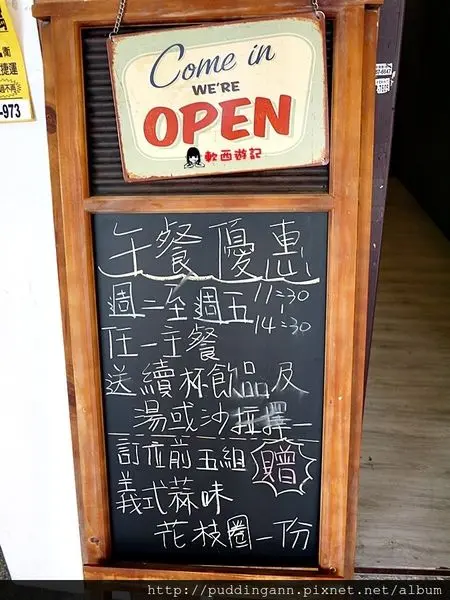 Come in
WE'RE
OPEN
軟西遊記
午餐優惠
週二至週五 11:30
14:30
任一主餐
送續杯飲品及
湯或沙拉擇一
訂位前五組 贈
義式蒜味
花枝圈一份
衛
捷運
-973
http://puddingann.pixnet.net/album